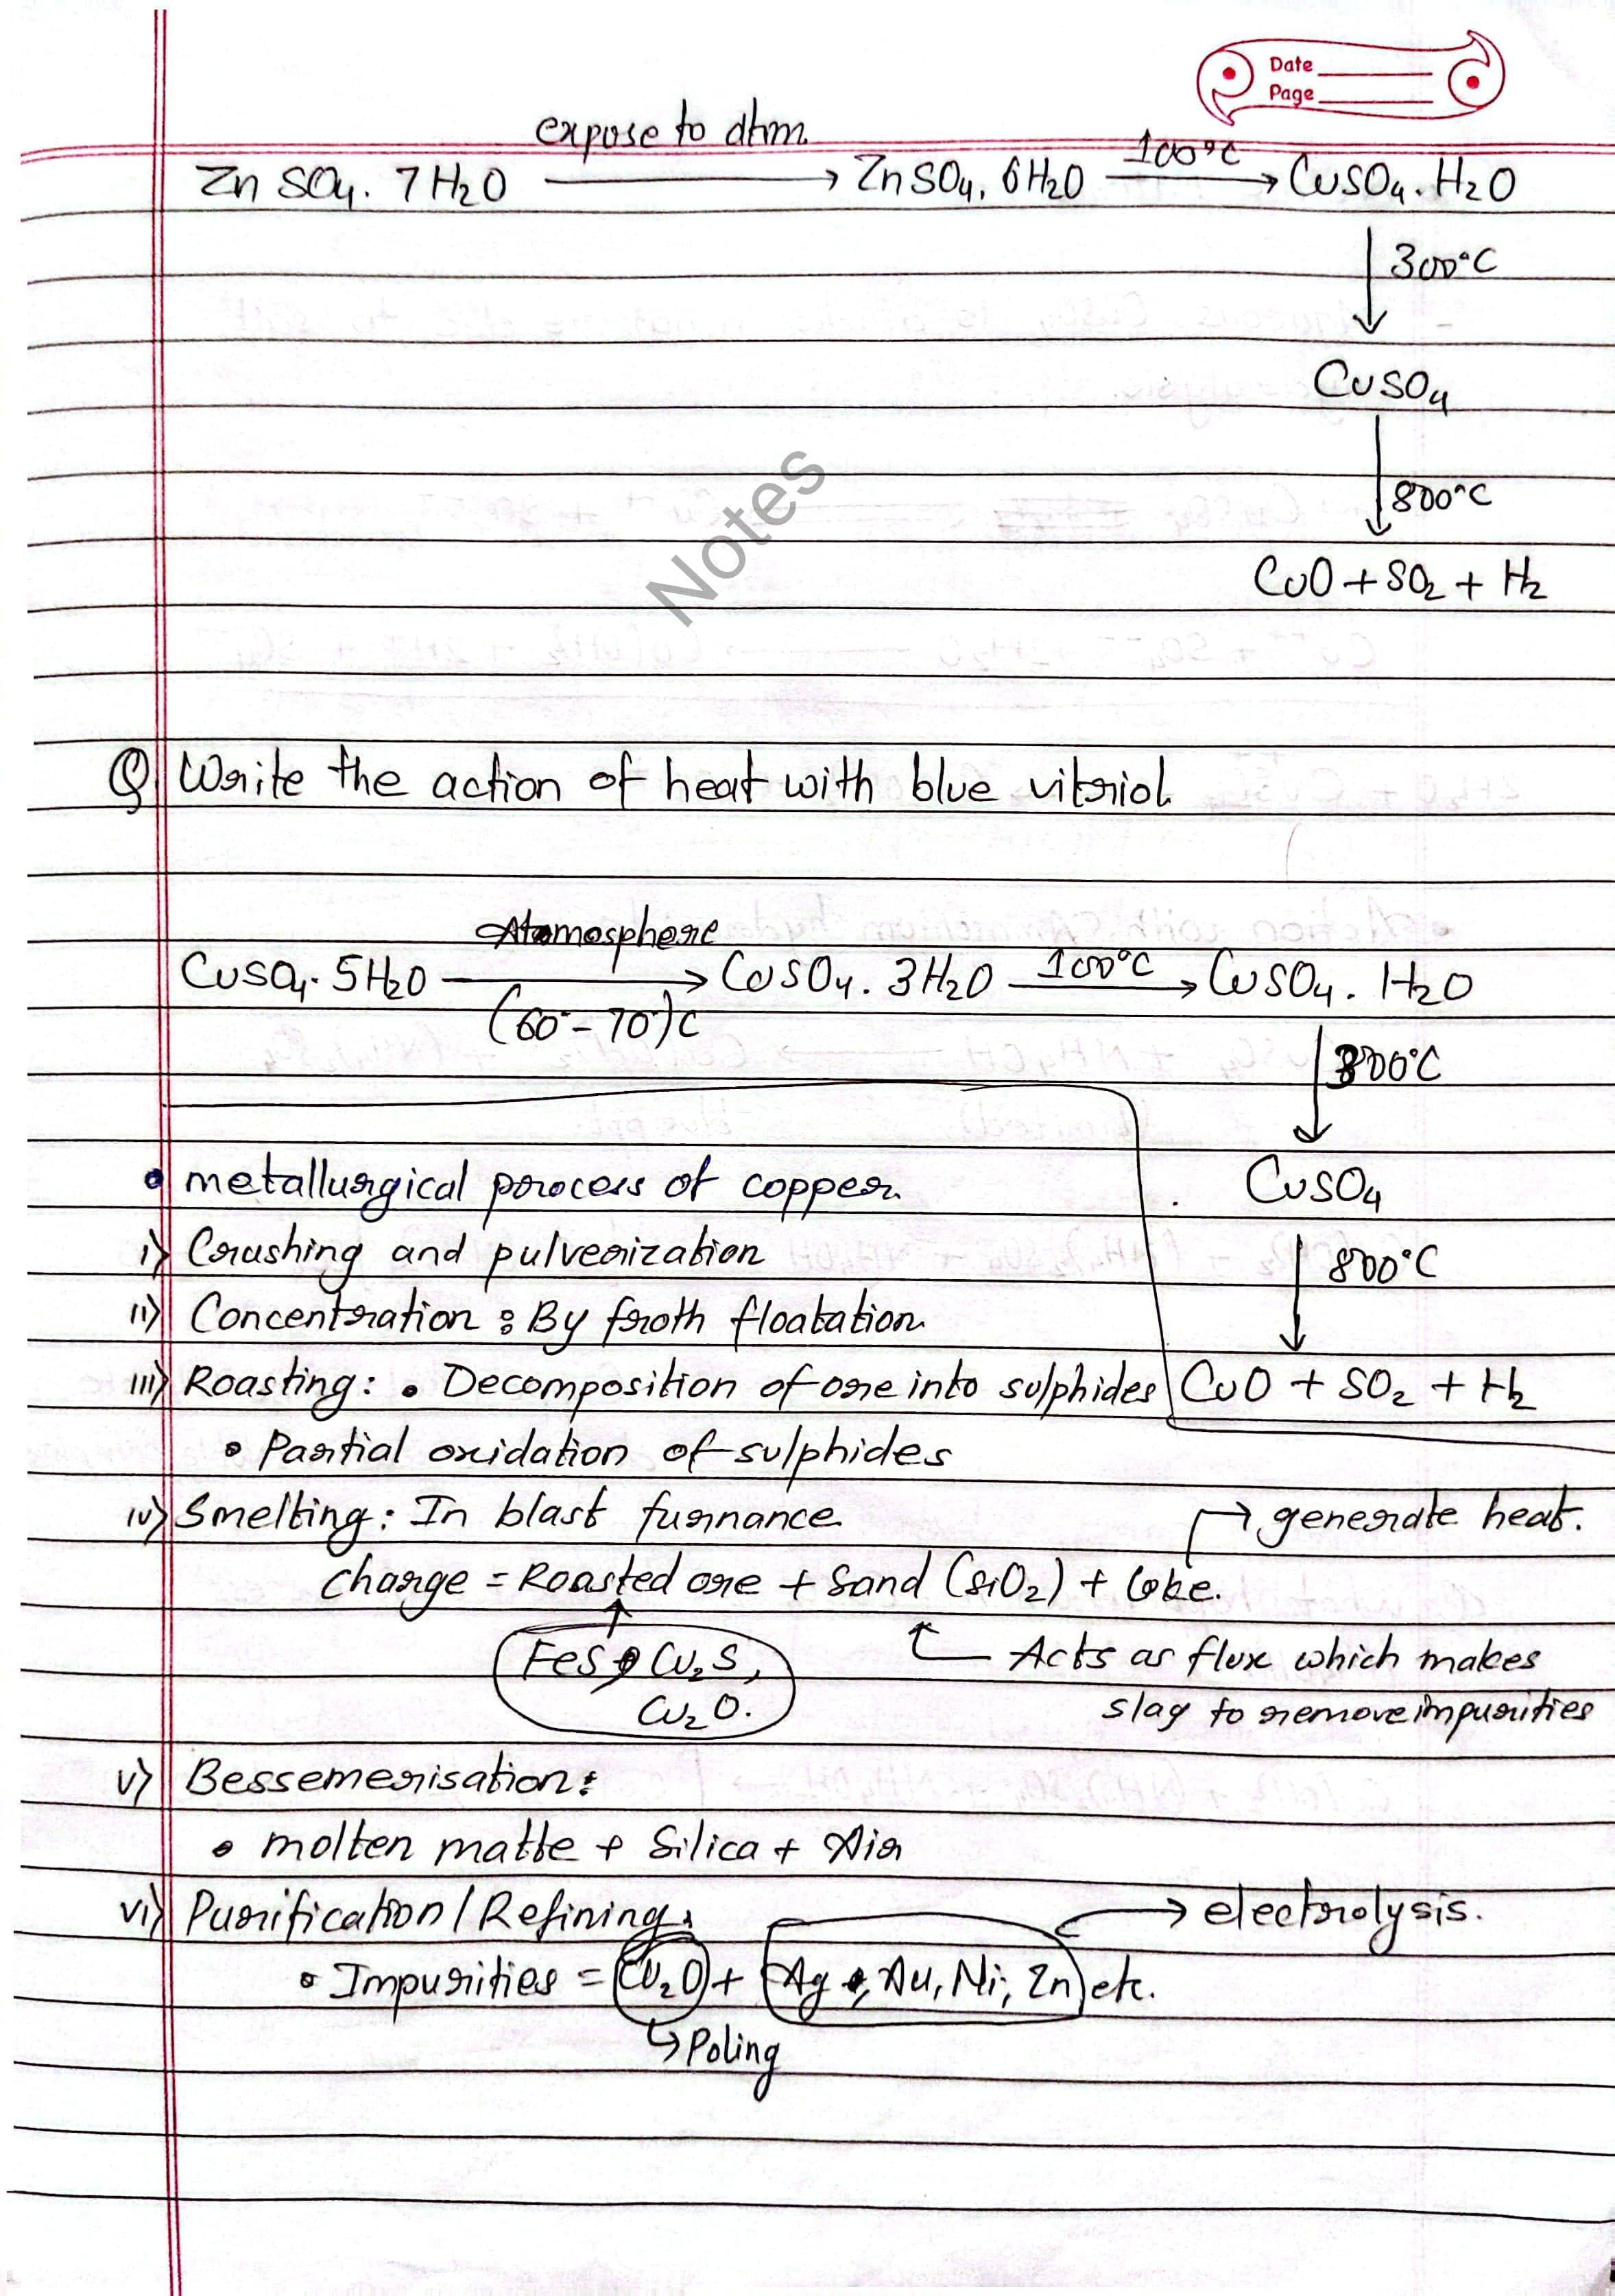 Date
Page
expose to atm.
ZnSO₄. 7H₂O ⟶ ZnSO₄. 6H₂O 100°C ⟶ CuSO₄. H₂O
↓ 300°C
CuSO₄
↓ 800°C
CuO + SO₂ + H₂
Notes
Q Write the action of heat with blue vitriol.
Atomosphere
CuSO₄. 5H₂O ⟶ CuSO₄. 3H₂O 100°C ⟶ CuSO₄. H₂O
(60°- 70°)c
↓ 300°C
CuSO₄
↓ 800°C
CuO + SO₂ + H₂
• metallurgical process of copper.
i) Crushing and pulverization
ii) Concentration : By froth floatation.
iii) Roasting: • Decomposition of ore into sulphides
• Partial oxidation of sulphides
iv) Smelting: In blast furnance.
→ generate heat.
charge = Roasted ore + Sand (siO₂) + Coke.
FeS, Cu₂S,
Cu₂O.
Acts as flux which makes
slag to remove impurities
v) Bessemerisation:
• molten matte + Silica + Air
vi) Purification / Refining:
→ electrolysis.
• Impurities = Cu₂O + Ag, Au, Ni, Zn etc.
↳ Poling